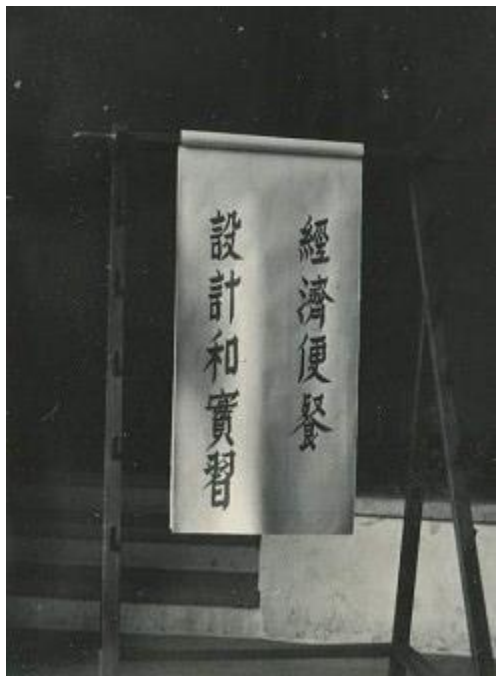 經濟便餐
設計和實習